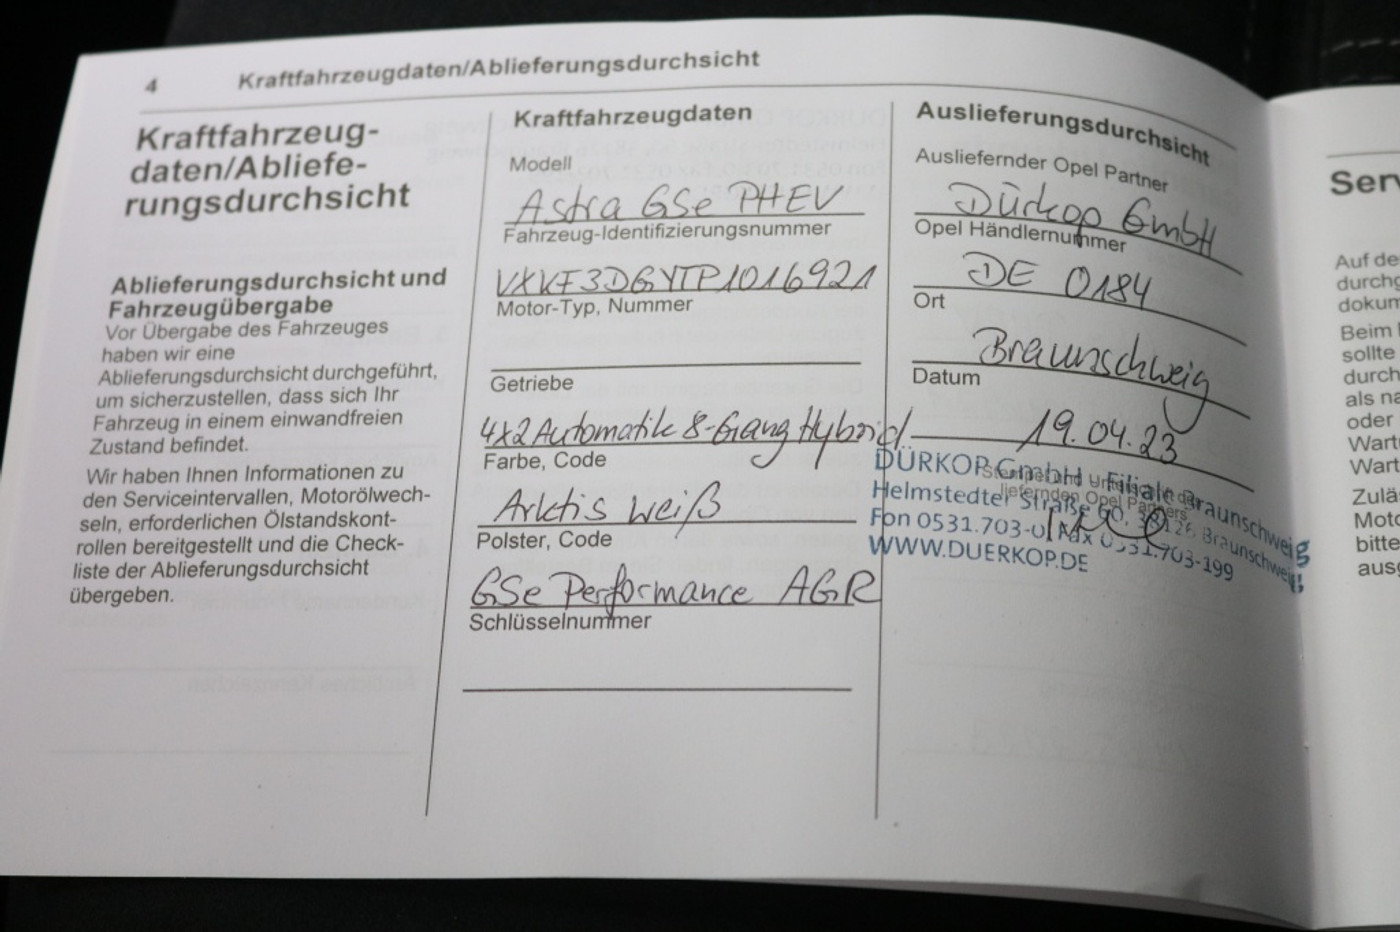 4
Kraftfahrzeugdaten/Ablieferungsdurchsicht
Kraftfahrzeug-
daten/Abliefe-
rungsdurchsicht
Ablieferungsdurchsicht und
Fahrzeugübergabe
Vor Übergabe des Fahrzeuges
haben wir eine
Ablieferungsdurchsicht durchgeführt,
um sicherzustellen, dass sich Ihr
Fahrzeug in einem einwandfreien
Zustand befindet.
Wir haben Ihnen Informationen zu
den Serviceintervallen, Motorölwech-
seln, erforderlichen Ölstandskont-
rollen bereitgestellt und die Check-
liste der Ablieferungsdurchsicht
übergeben.
Kraftfahrzeugdaten
Modell
Astra GSe PHEV
Fahrzeug-Identifizierungsnummer
VXKF3DGYTP1016921
Motor-Typ, Nummer
Getriebe
4x2 Automatik 8-Gang Hybrid
Farbe, Code
Arktis weiß
Polster, Code
GSe Performance AGR
Schlüsselnummer
Auslieferungsdurchsicht
Ausliefernder Opel Partner
Dürkop GmbH
Opel Händlernummer
DE 0184
Ort
Braunschweig
Datum
19.04.23
DÜRKOP GmbH Filiale Braunschweig
liefernden Opel Partners
Helmstedter Straße 60, 38126 Braunschweig
Fon 0531.703-0 Fax 0531.703-199
WWW.DUERKOP.DE
Ser
Auf de
durchg
dokum
Beim
sollte
durch
als na
oder
Wart
Wart
Zulä
Moto
bitte
ausg